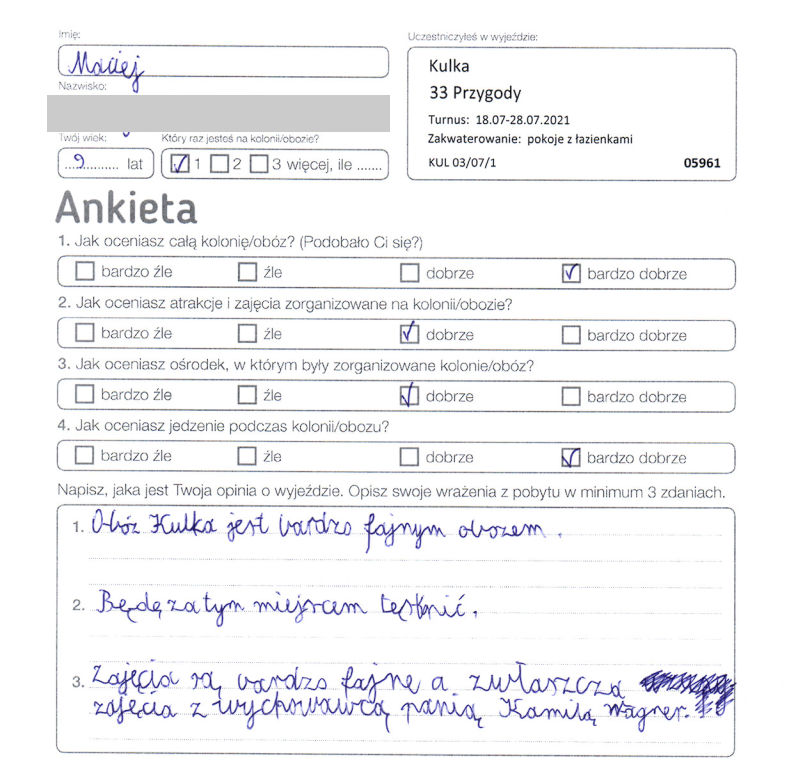 Imię:
Maciej
Nazwisko:
Twój wiek:
9 lat
Który raz jesteś na kolonii/obozie?
1 2 3 więcej, ile .......
Uczestniczyłeś w wyjeździe:
Kulka
33 Przygody
Turnus: 18.07-28.07.2021
Zakwaterowanie: pokoje z łazienkami
KUL 03/07/1 05961
Ankieta
1. Jak oceniasz całą kolonię/obóz? (Podobało Ci się?)
bardzo źle źle dobrze bardzo dobrze
2. Jak oceniasz atrakcje i zajęcia zorganizowane na kolonii/obozie?
bardzo źle źle dobrze bardzo dobrze
3. Jak oceniasz ośrodek, w którym były zorganizowane kolonie/obóz?
bardzo źle źle dobrze bardzo dobrze
4. Jak oceniasz jedzenie podczas kolonii/obozu?
bardzo źle źle dobrze bardzo dobrze
Napisz, jaka jest Twoja opinia o wyjeździe. Opisz swoje wrażenia z pobytu w minimum 3 zdaniach.
1. Obóz Kulka jest bardzo fajnym obozem.
2. Będę za tym miejscem tęsknić.
3. Zajęcia są bardzo fajne a zwłaszcza
zajęcia z wychowawcą panią Kamilą Wagner.